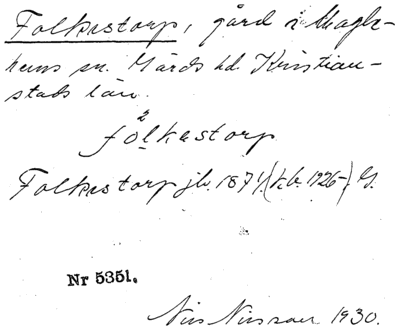 Folkestorp, gård i Magle-
hems sn. Gärds hd. Kristian-
stads län.
fo̊lkastorp
Folkestorp jb. 1871, (kb. 1926-), G.
Nr 5351.
Nils Nilsson 1930.